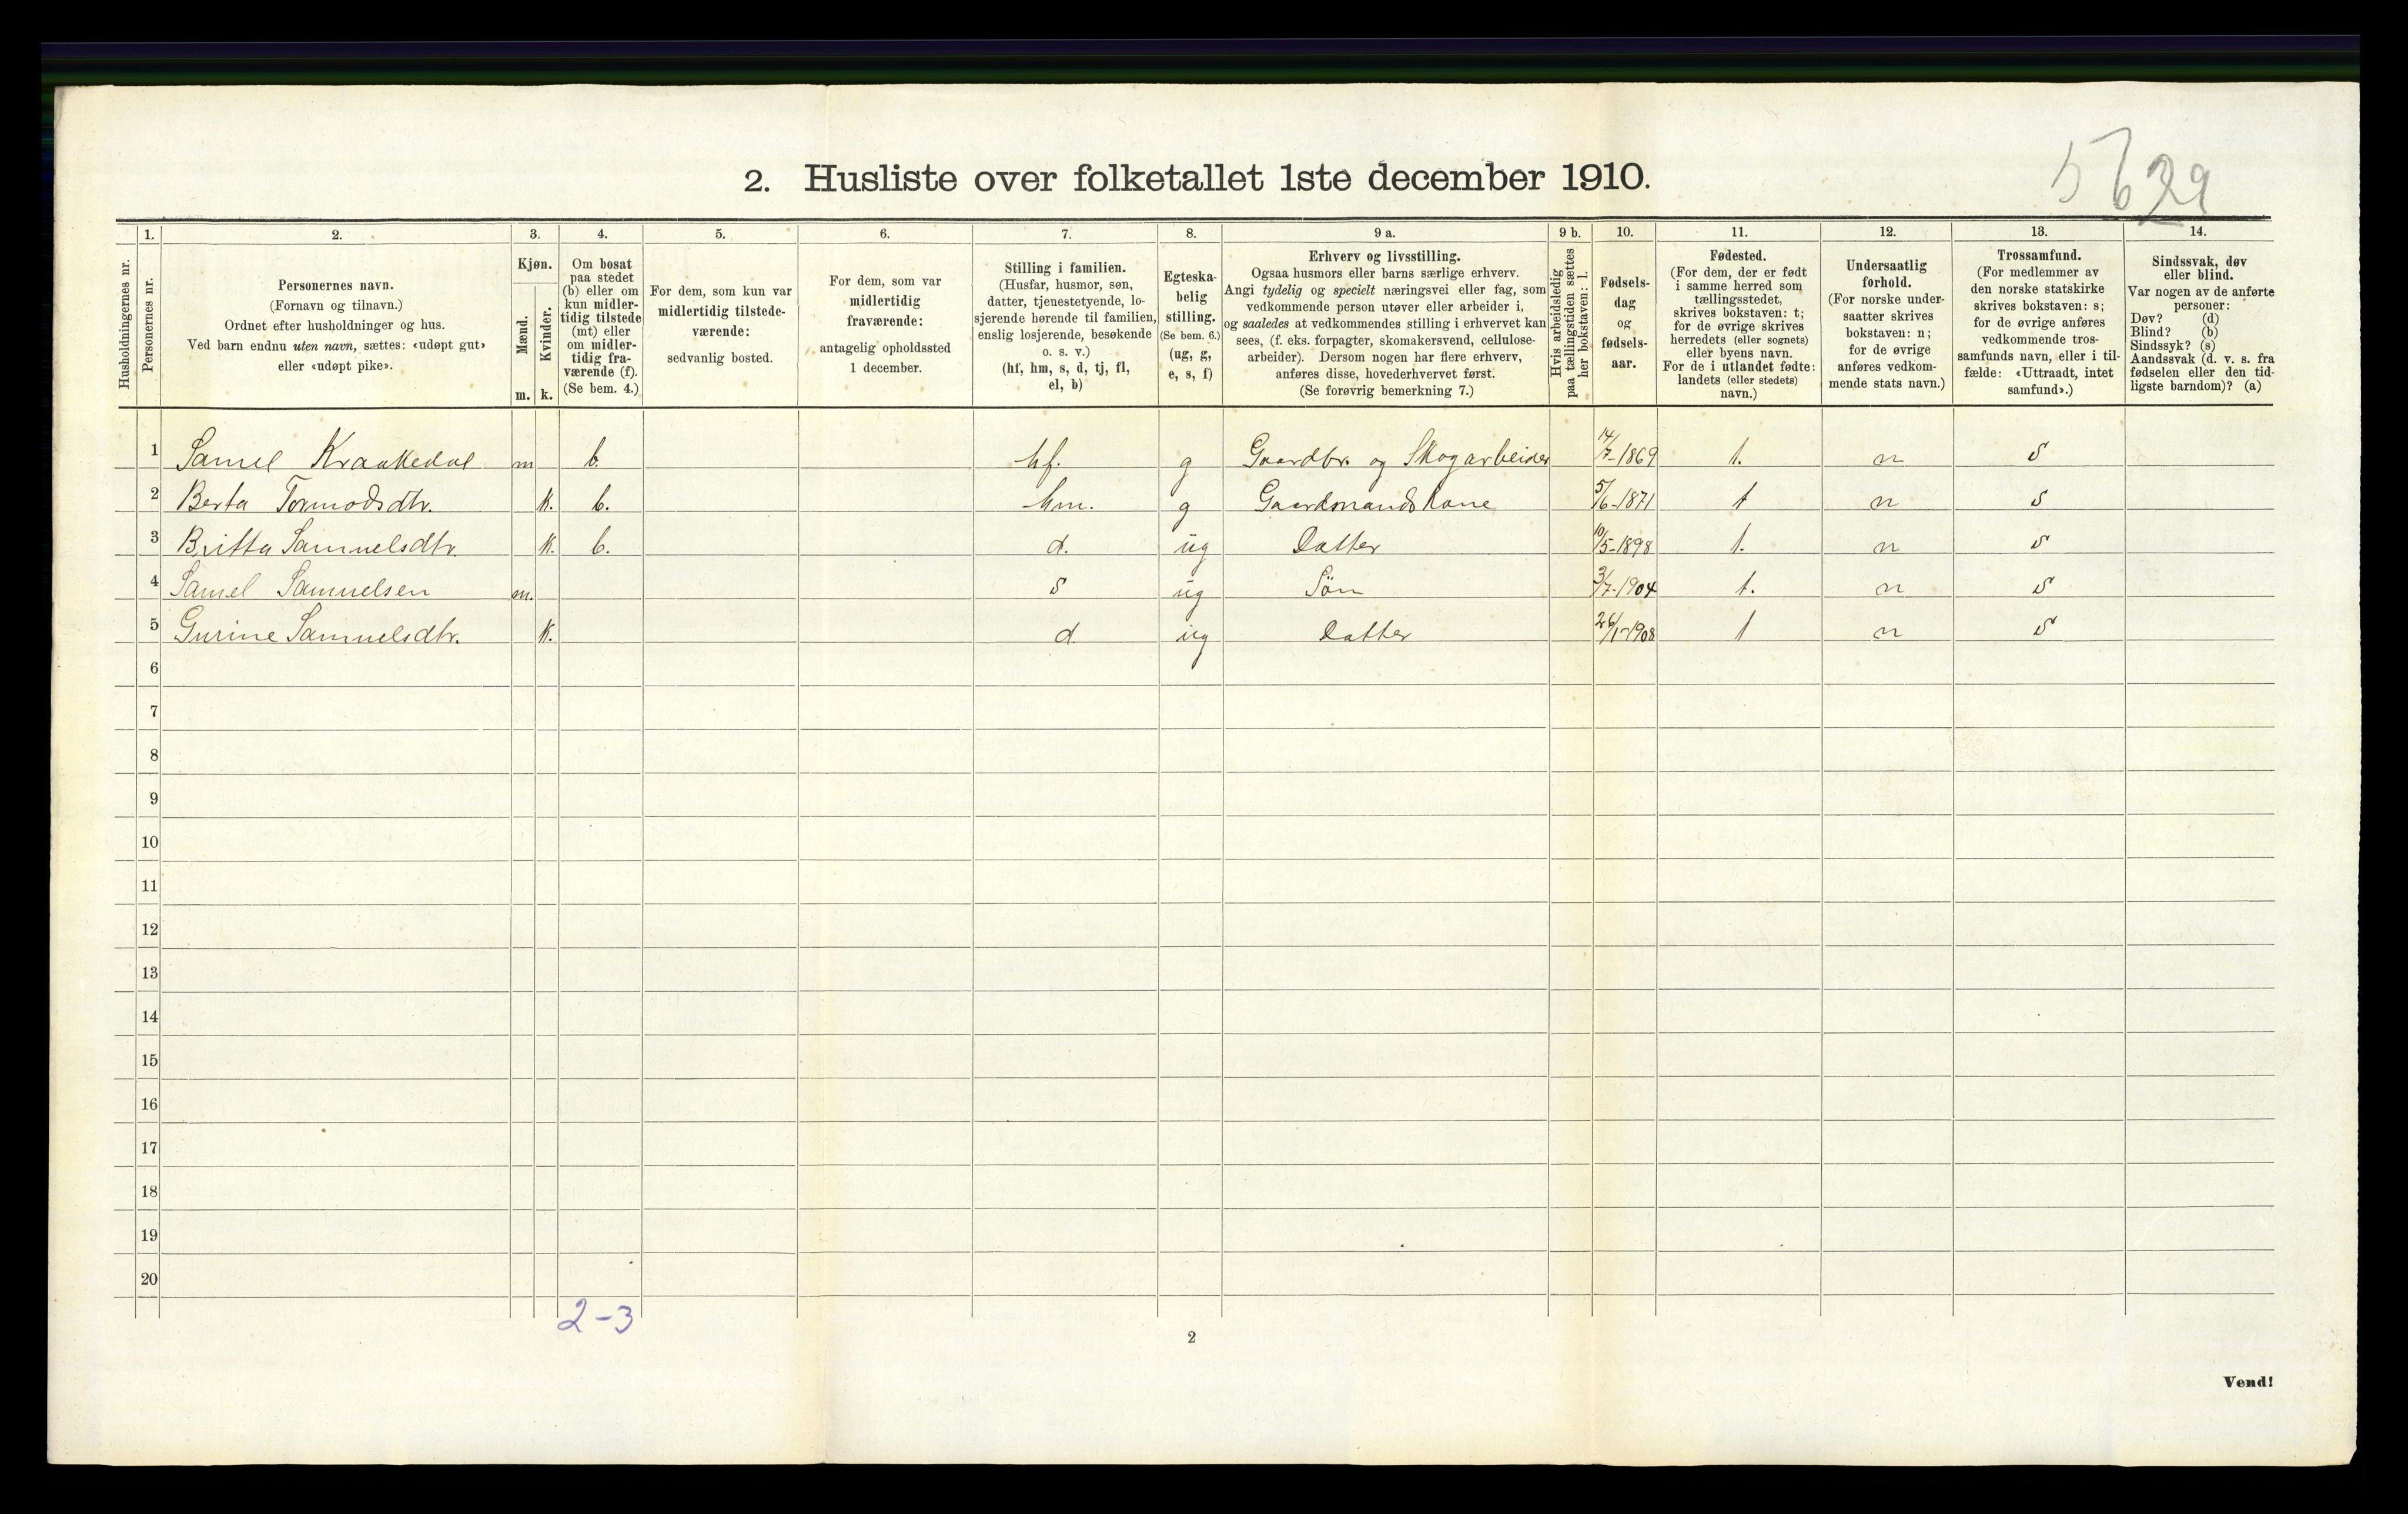 5629
2. Husliste over folketallet 1ste december 1910.
1. 2. 3. 4. 5. 6. 7. 8. 9 a. 9 b. 10. 11. 12. 13. 14.
Husholdningernes nr.
Personernes nr.
Personernes navn.
(Fornavn og tilnavn.)
Ordnet efter husholdninger og hus.
Ved barn endnu uten navn, sættes: «udøpt gut»
eller «udøpt pike».
Kjøn.
Mænd.
m.
Kvinder.
k.
Om bosat
paa stedet
(b) eller om
kun midler-
tidig tilstede
(mt) eller
om midler-
tidig fra-
værende (f).
(Se bem. 4.)
For dem, som kun var
midlertidig tilstede-
værende:
sedvanlig bosted.
For dem, som var
midlertidig
fraværende:
antagelig opholdssted
1 december.
Stilling i familien.
(Husfar, husmor, søn,
datter, tjenestetyende, lo-
sjerende hørende til familien,
enslig losjerende, besøkende
o. s. v.)
(hf, hm, s, d, tj, fl,
el, b)
Egteska-
belig
stilling.
(Se bem. 6.)
(ug, g,
e, s, f)
Erhverv og livsstilling.
Ogsaa husmors eller barns særlige erhverv.
Angi tydelig og specielt næringsvei eller fag, som
vedkommende person utøver eller arbeider i,
og saaledes at vedkommendes stilling i erhvervet kan
sees, (f. eks. forpagter, skomakersvend, cellulose-
arbeider). Dersom nogen har flere erhverv,
anføres disse, hovederhvervet først.
(Se forøvrig bemerkning 7.)
Hvis arbeidsledig
paa tællingstiden sættes
her bokstaven: l.
Fødsels-
dag
og
fødsels-
aar.
Fødested.
(For dem, der er født
i samme herred som
tællingsstedet,
skrives bokstaven: t;
for de øvrige skrives
herredets (eller sognets)
eller byens navn.
For de i utlandet fødte:
landets (eller stedets)
navn.)
Undersaatlig
forhold.
(For norske under-
saatter skrives
bokstaven: n;
for de øvrige
anføres vedkom-
mende stats navn.)
Trossamfund.
(For medlemmer av
den norske statskirke
skrives bokstaven: s;
for de øvrige anføres
vedkommende tros-
samfunds navn, eller i til-
fælde: «Uttraadt, intet
samfund».)
Sindssvak, døv
eller blind.
Var nogen av de anførte
personer:
Døv? (d)
Blind? (b)
Sindssyk? (s)
Aandssvak (d. v. s. fra
fødselen eller den tid-
ligste barndom)? (a)
1 Samel Kraakedal m b. hf. g Gaardbr. og Skogarbeider 14/7-1869 t. n s
2 Berta Tormodsdtr. k. b. hm. g Gaardmandskone 5/6-1871 t n s
3 Britta Samuelsdtr. k. b. d. ug Datter 10/5-1898 t. n s
4 Samel Samuelsen m. s ug Søn 3/7-1904 t. n s
5 Gurine Samuelsdtr. k. d. ug Datter 26/1-1908 t n s
6
7
8
9
10
11
12
13
14
15
16
17
18
19
20
2-3
2
Vend!